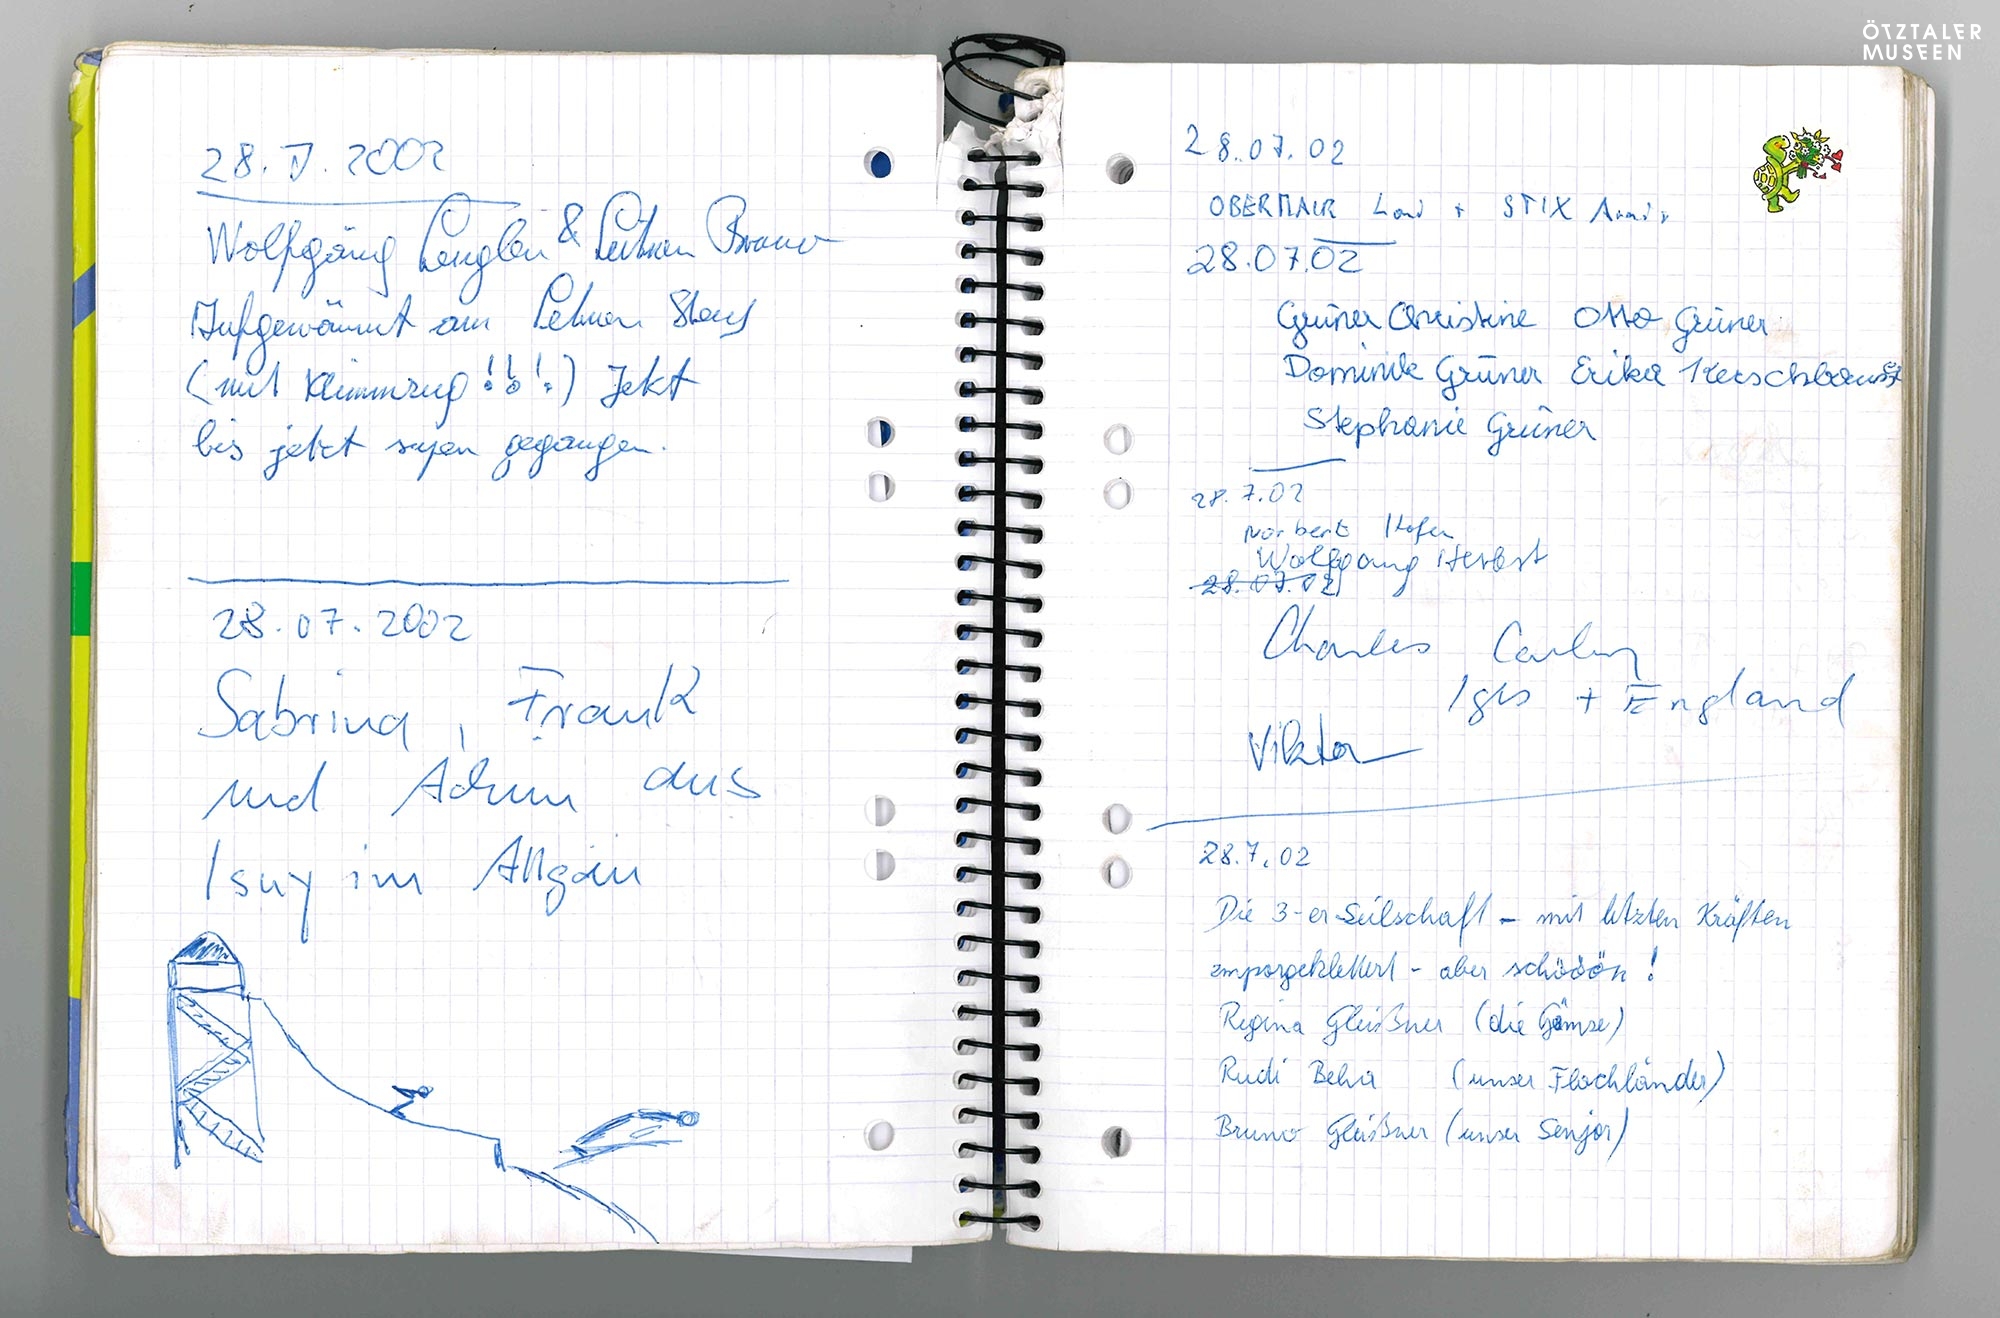 28. IV. 2002
Wolfgang & Bruno
Aufgewärmt am Lehner
(mit Klimmzug!!!) Jetzt
bis jetzt gegangen.
28.07.2002
Sabrina, Frank
und aus
Isny im Allgäu
28.07.02
OBERMAIR + STIX
28.07.02
Grüner Christine Otto Grüner
Dominik Grüner Erika
Stephanie Grüner
28.7.02
Norbert Hofer
Wolfgang Herbst
28.07.02
Charles
Igls + England
Viktor
28.7.02
Die 3-er-Seilschaft - mit letzten Kräften
emporgeklettert - aber schööön!
Regina Gleißner (die Gämse)
Rudi Beha (unser Flachländer)
Bruno Gleißner (unser Senjor)
ÖTZTALER
MUSEEN